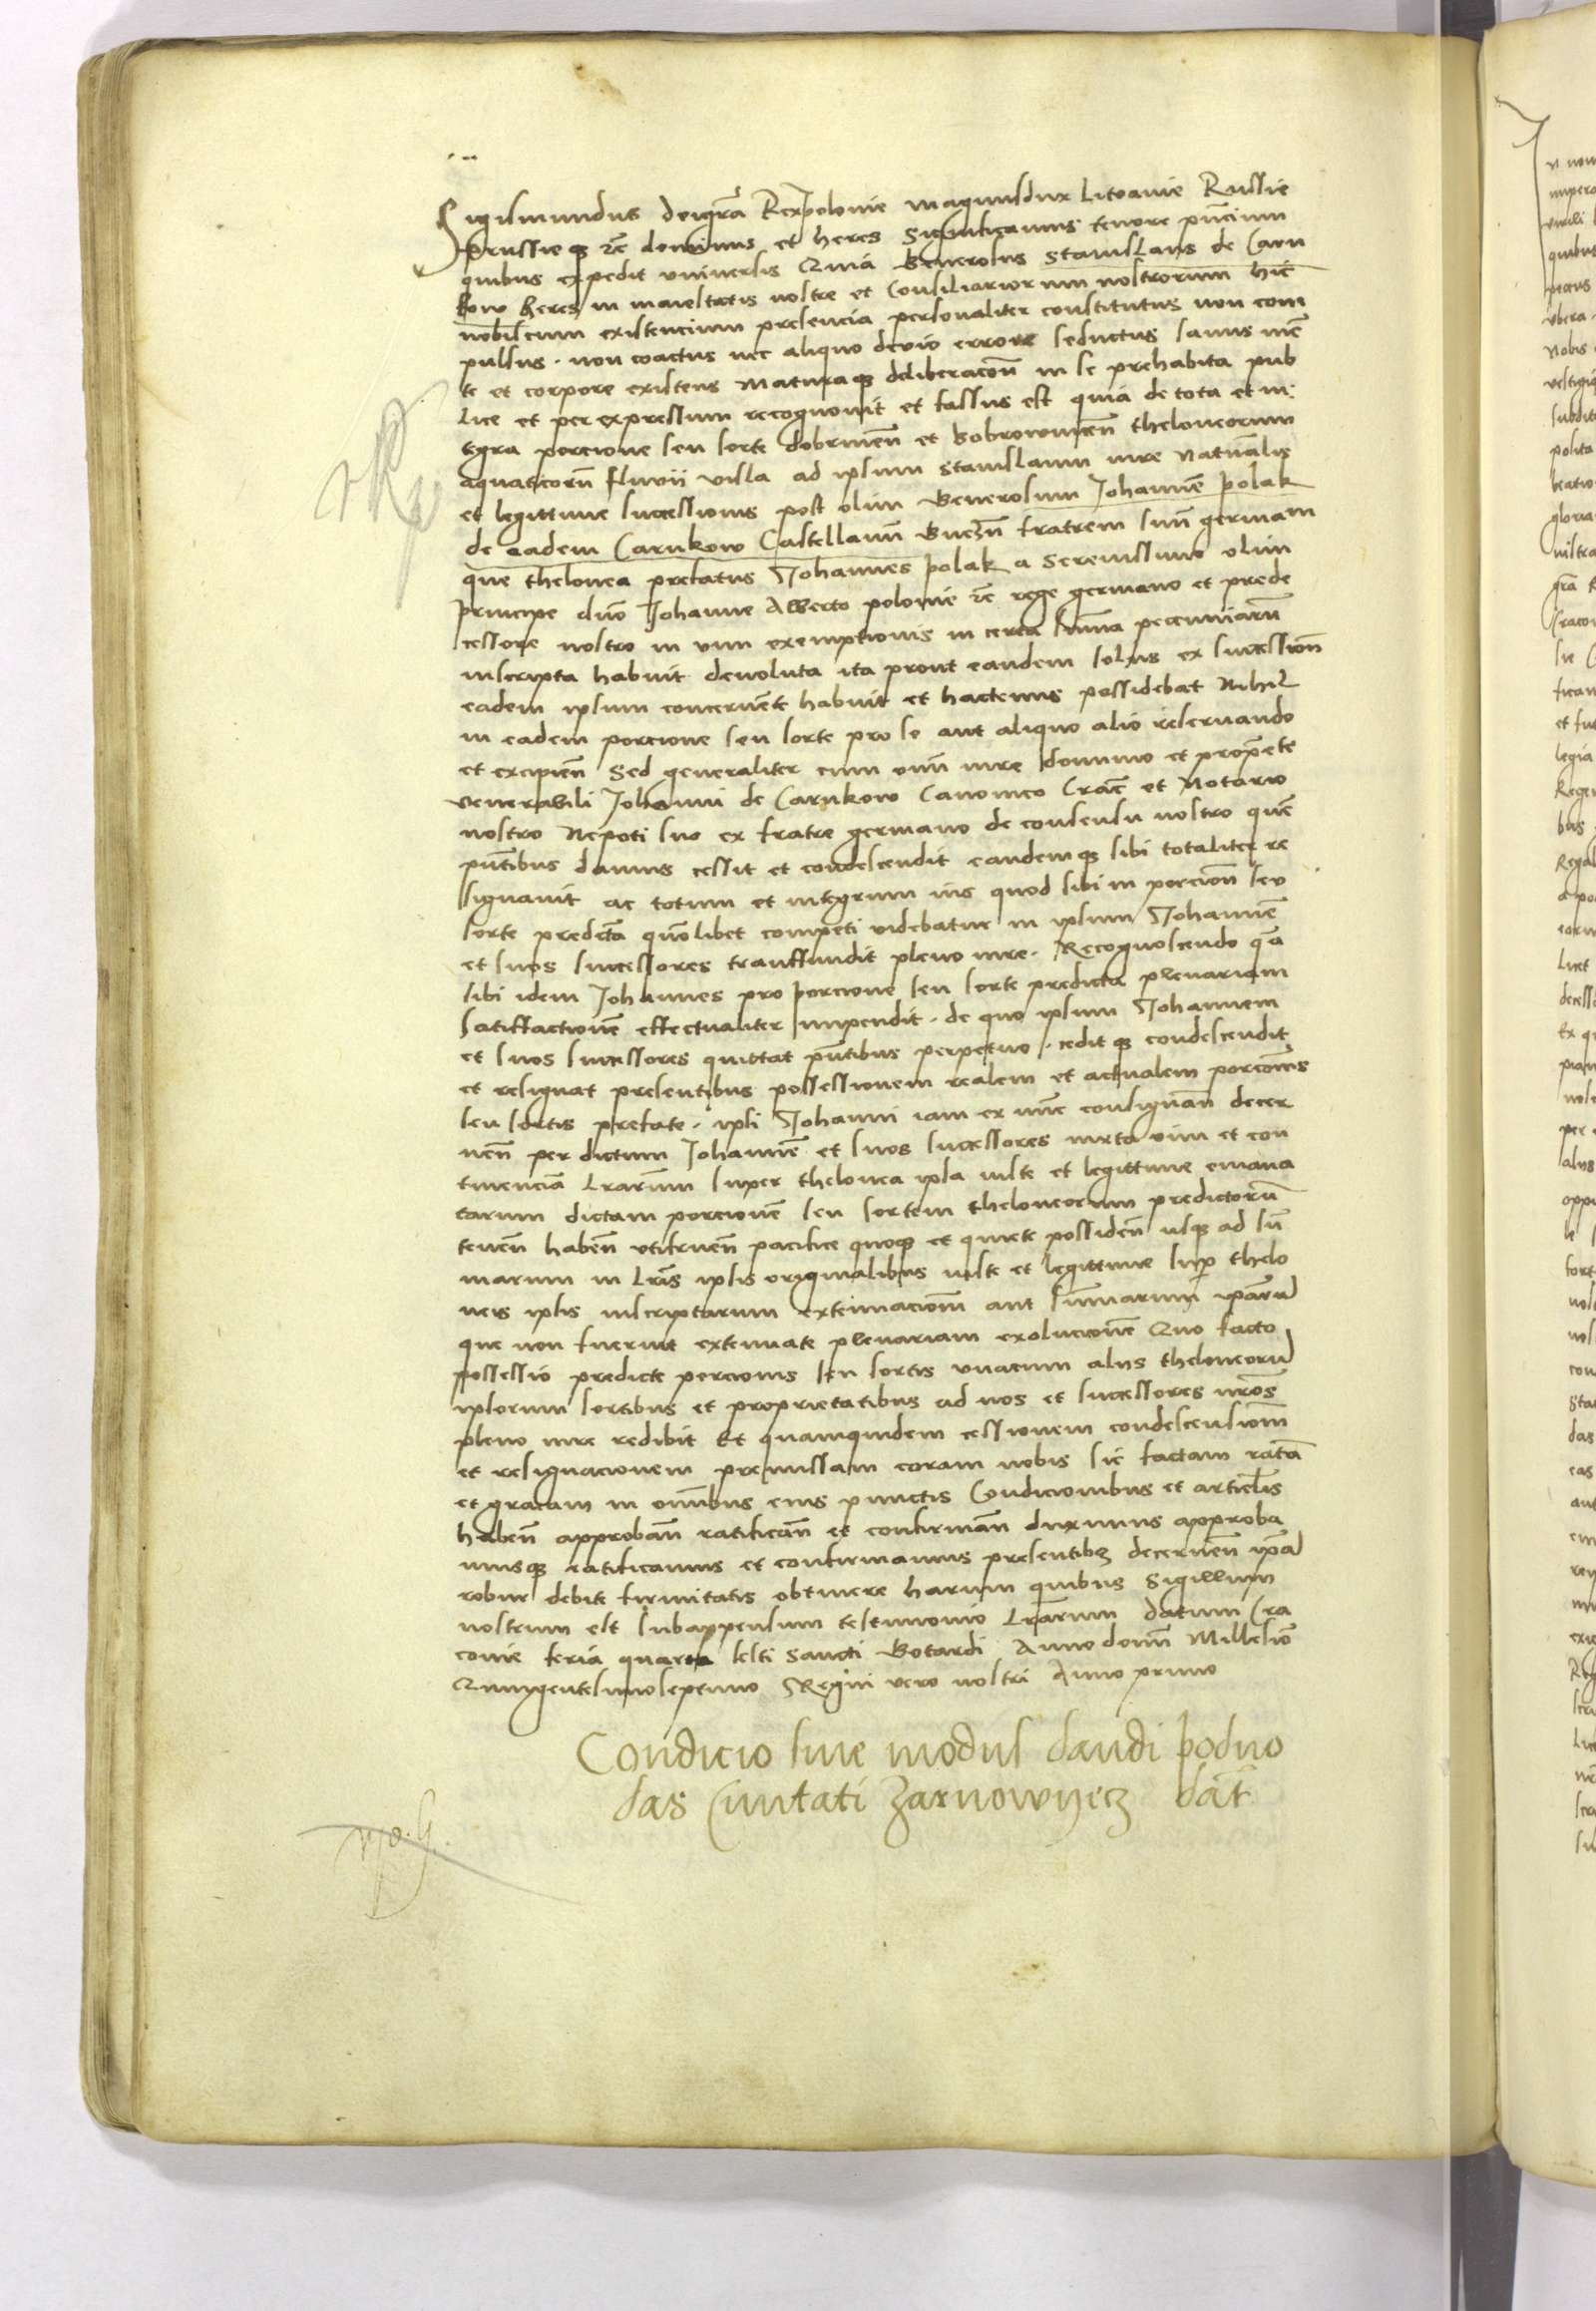 Sigismundus deigra͞ Rexpolonie magnusdux Litvanie Russie
Prussieq͛ ꝛc͞ dominus et heres Significamus tenore pn͞cium
quibus expedit universis Quia Generosus Stanislaus de Carn
kow heres in maiestatis nostre et Consiliariorum nostrorum hic
nobiscum existencium presencia personaliter constitutus non com
pulsus . non coactus nec aliquo devio errore seductus sanus men͞
te et corpore existens maturaq͛ deliberacon͞ in se prehabita pub
lice et per expressum recognovit et fassus est quia de tota et in:
tegra porcione seu sorte dobrinen͞ et bobrownicen͞ theloneorum
aquaticoru͞ fluvii visla ad ipsum Stanislaum iure naturalis
et legittime successionis post olim Generosum Johanne͞ polak
de eadem Carnkow Castellanu͞ Gnezn͞ fratrem suu͞ germanum
que thelonea prefatus Johannes polak a Serenissimo olim
principe dno͞ Johanne Alberto polonie ꝛc͞ rege germano et prede
cessore nostro in vim exemptionis in certa summa pecuniaru͞
inscripta habuit devoluta ita prout eandem solus ex succession͞
eadem ipsum concernen͞te habuit et hactenus possidebat Nihil
in eadem porcione seu sorte pro se aut aliquo alio reservando
et excipien͞ Sed generaliter cum omni iure dominio et propriete
venerabili Johanni de Carnkow Canonico Crac͞ et Notario
nostro Nepoti suo ex fratre germano de consensu nostro que͞
pn͞tibus damus cessit et condescendit eandemq͛ sibi totaliter re
signavit ac totum et integrum ius quod sibi in porcion͞ seu
sorte predicta quo͞libet competi videbatur in ipsum Johanne͞
et suos successores transfundit pleno iure . Recognoscendo q͞a
sibi idem Johannes pro porcione seu sorte predicta plenariam
satisfactione͞ effectualiter impendit . de quo ipsum Johannem
et suos successores quittat pn͞tibus perpetuo . cedit q͛ condescendit
et resignat presentibus possessionem realem et actualem porcionis
seu sortis prefate . ipsi Johanni iam ex nunc consignan͞ decer
nen͞ per dictum Johanne͞ et suos successores iuxta vim et con
tinencia͞ Lrarum super thelonea ipsa iuste et legittime emana
tarum dictam porcione͞ seu sortem theloneorum predictoru͞
tenen͞ haben͞ utifruen͞ pacifice quoq͛ et quiete possiden͞ usq͛ ad su͞
marum in Lris͞ ipsis originalibus iuste et legittime sup͞ thelo
neis ipsis inscriptarum extenuacione͞ aut su͞marum ip͞aru͞
que non fuerint extenuate plenariam exolucione͞ Quo facto
possessio predicte porcionis seu sortis unacum aliis theloneoru͞
ipsorum sortibus et proprietatibus ad nos et successores nr͞os
pleno iure redibit Et quamquidem cessionem condescensione͞
et resignacionem premissam coram nobis sic factam rata͞
et gratam in omnibus eius punctis Condicionibus et articulis
haben͞ approban͞ ratifican͞ et confirman͞ duximus approba
musq͛ ratificamus et confirmamus presentibꝫ decernen͞ ip͞a͞
robur debite firmitatis obtinere harum quibus Sigillum
nostrum est subappensum testimonio Lrarum datum Cra
covie feria quarta festi Sancti Gotardi Anno domi͞ Millesimo
Quingentesimoseptimo Regni vero nostri Anno primo
Condicio sive modus dandi poduo
das Civitati Zarnowyecz dat͞